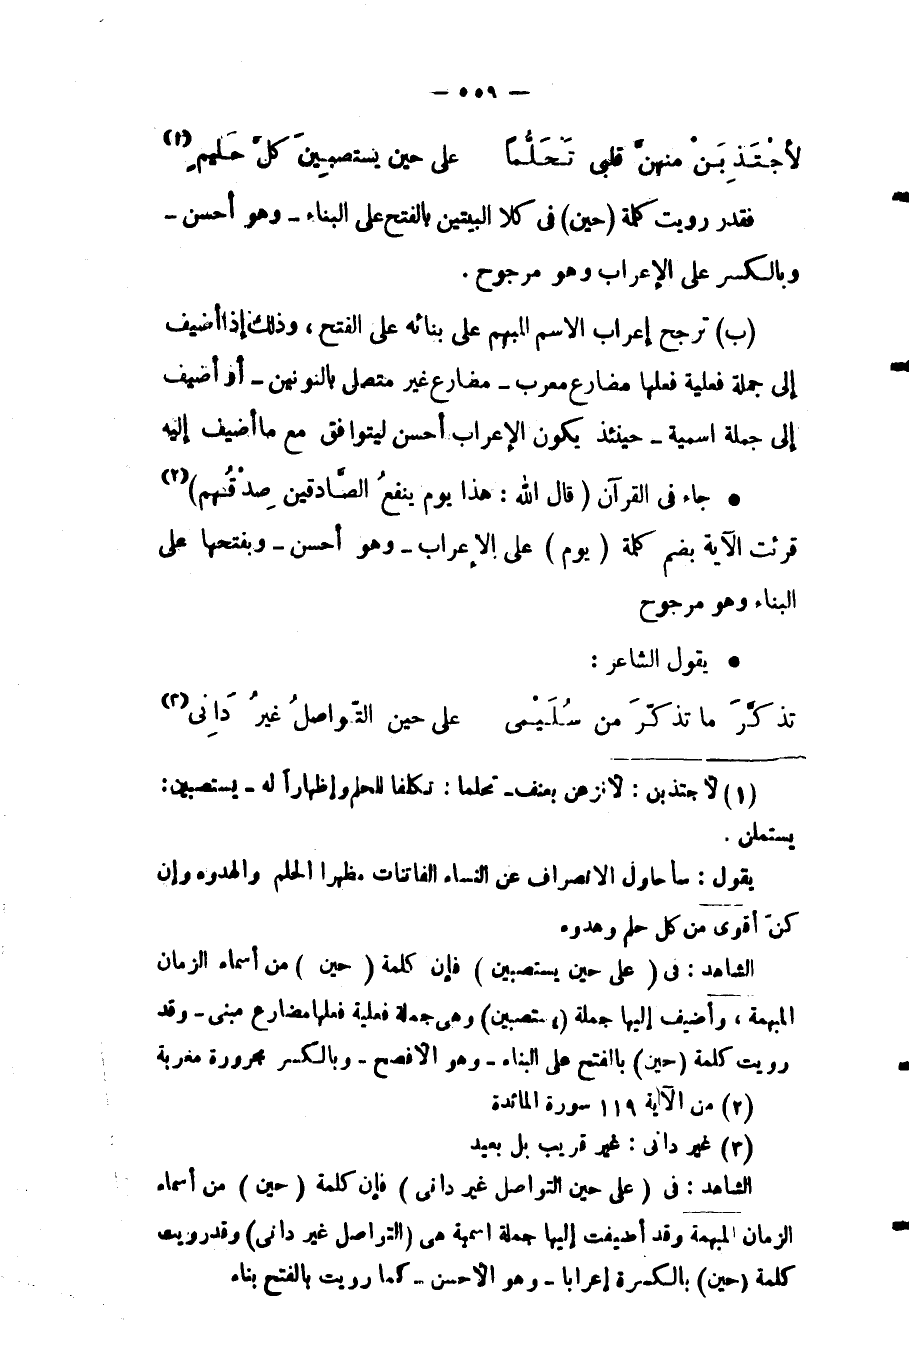 — ٥٥٩ —
لأجْتَذِبَنْ منهنّ قلبى تَحَلُّمًا على حين يستصبِينَ كلّ حَليمِ(١)
فقدر رويت كلمة (حين) فى كلا البيتين بالفتح على البناء - وهو أحسن -
وبالكسر على الإعراب وهو مرجوح .
(ب) ترجح إعراب الاسم المبهم على بنائه على الفتح ، وذلك إذا أضيف
إلى جملة فعلية فعلها مضارع معرب - مضارع غير متصلى بالنونين - أو أضيف
إلى جملة اسمية - حينئذ يكون الإعراب أحسن ليتوافق مع ما أضيف إليه
● جاء فى القرآن ( قال الله : هذا يوم ينفعُ الصَّادقين صِدْقُهم)(٢)
قرئت الآية بضم كلمة ( يوم ) على الإعراب - وهو أحسن - وبفتحها على
البناء وهو مرجوح
● يقول الشاعر :
تذكَّرَ ما تذكّرَ من سُلَيْمى على حين التّواصلُ غيرُ دَانِى(٣)
(١) لاجتذبن : لانزعن بعنف - تحلما : تكلفا للحلم وإظهاراً له - يستصبين :
يستملن .
يقول : سأحاول الانصراف عن النساء الفاتنات مظهرا الحلم والهدوء وإن
كنّ أقوى من كل حلم وهدوء
الشاهد : فى ( على حين يستصبين ) فإن كلمة ( حين ) من أسماء الزمان
المبهمة ، وأضيف إليها جملة (يستصبين) وهى جملة فعلية فعلها مضارع مبنى - وقد
رويت كلمة (حين) باالفتح على البناء - وهو الأفصح - وبالكسر مجرورة معربة
(٢) من الآية ١١٩ سورة المائدة
(٣) غير دانى : غير قريب بل بعيد
الشاهد : فى ( على حين التواصل غير دانى ) فإن كلمة ( حين ) من أسماء
الزمان المبهمة وقد أضيفت إليها جملة اسمية هى (التواصل غير دانى) وقدرويت
كلمة (حين) بالكسرة إعرابا - وهو الأحسن - كما رويت بالفتح بناء